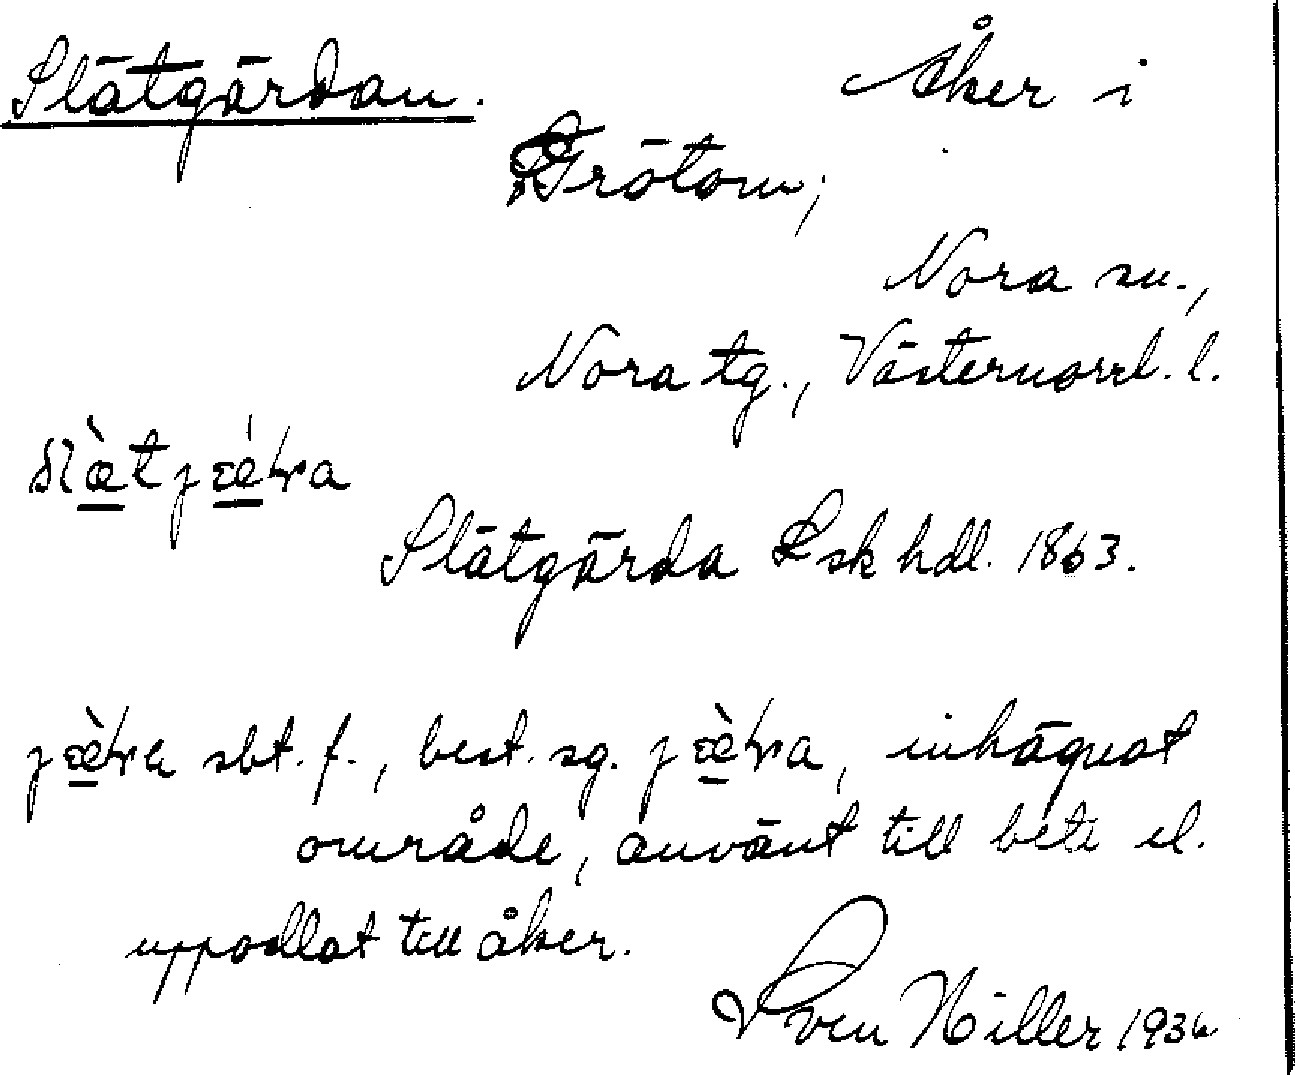 Slätgärdan. Åker i
Frötom;
Nora sn.,
Nora tg., Västernorrl. l.
Slätgärda Lsk hdl. 1863.
sbt. f., best. sg. inhägnat
område, använt till bete el.
uppodlat till åker.
Sven Hiller 1936